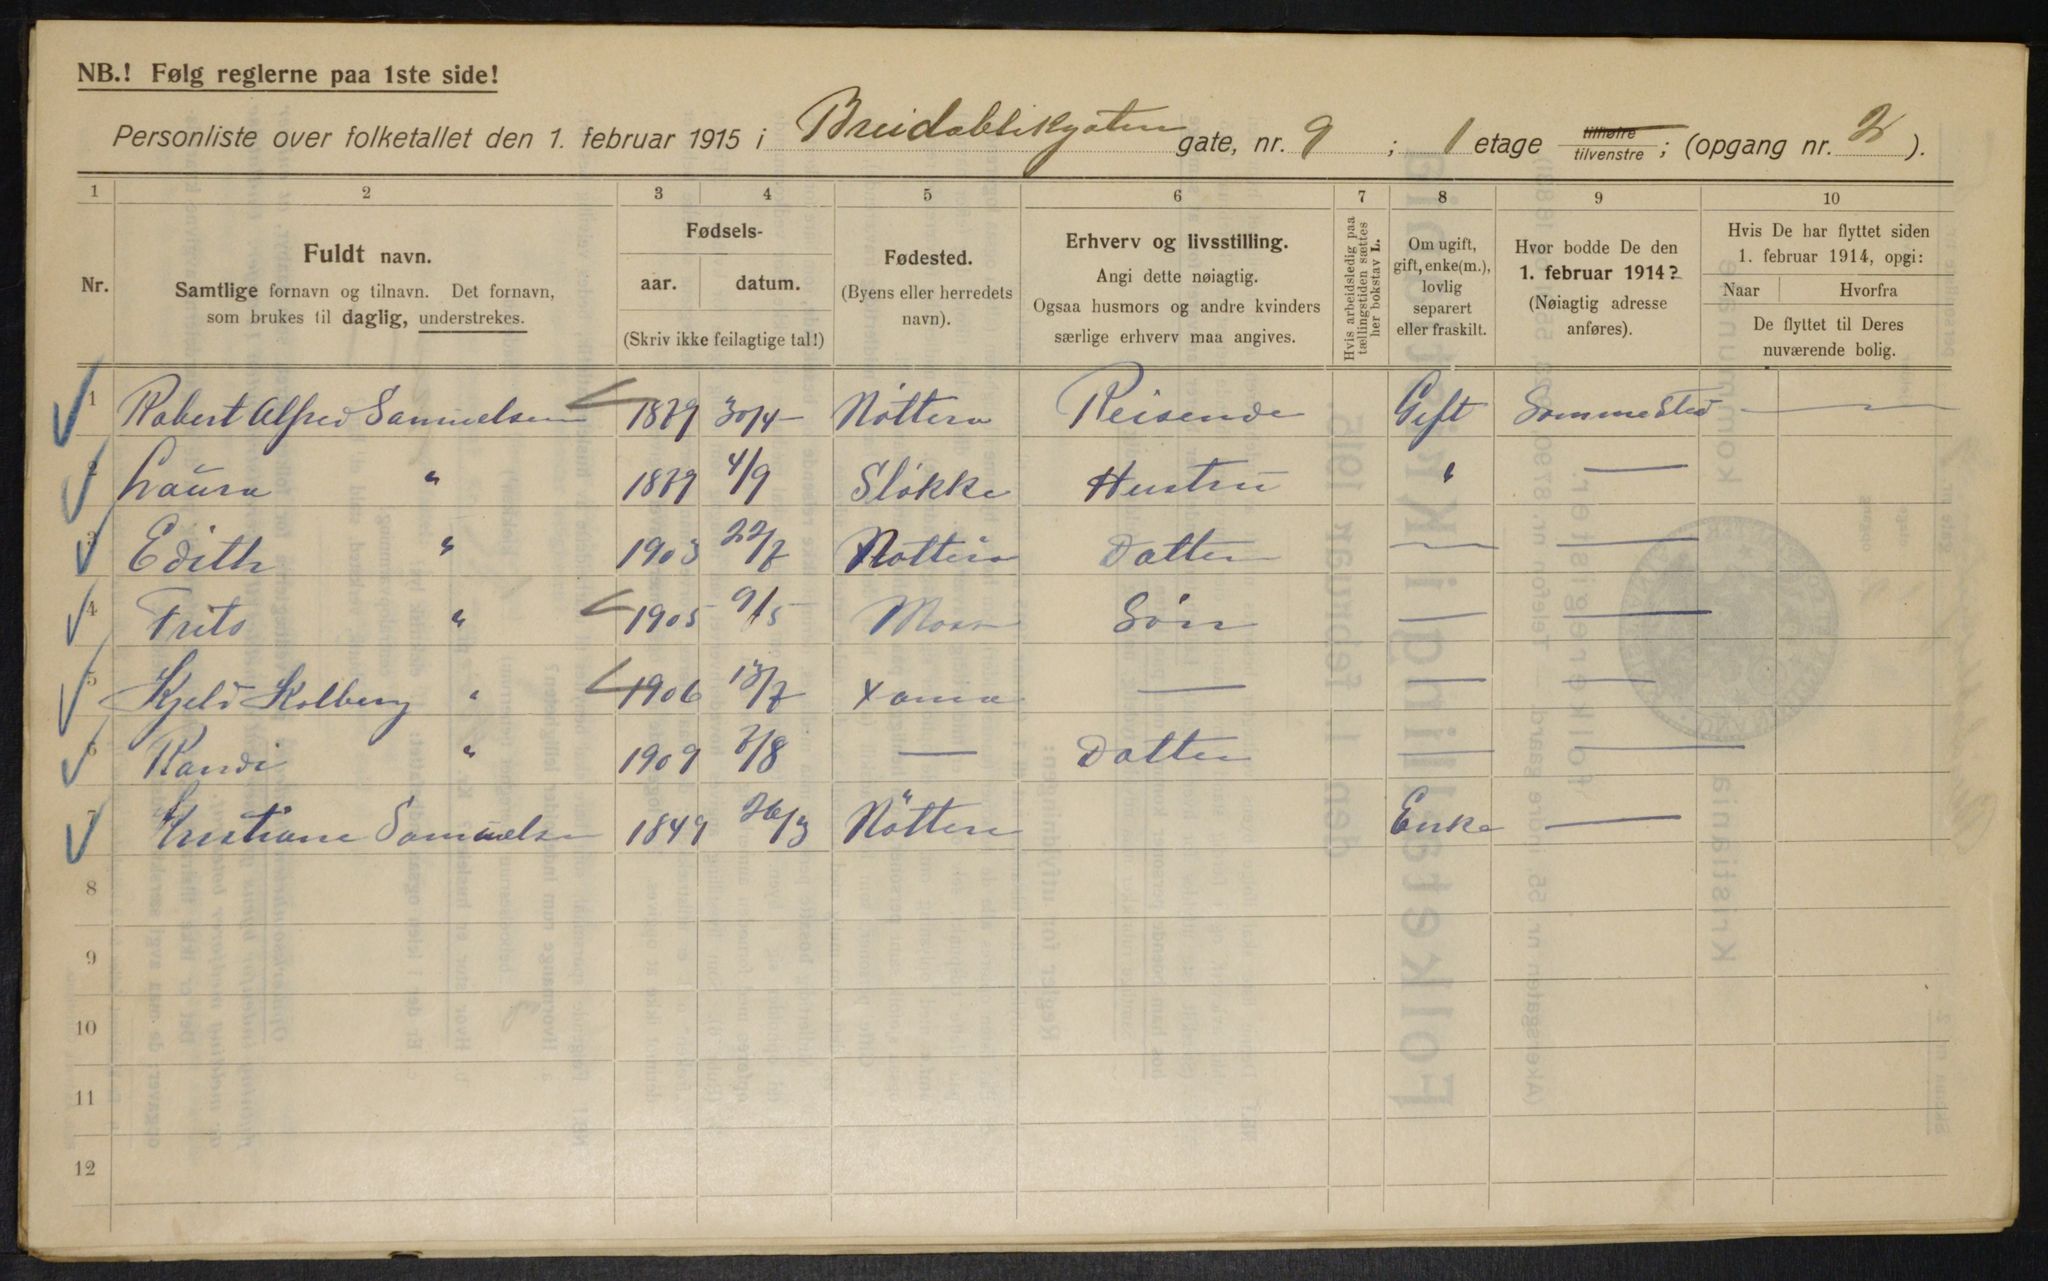 NB.! Følg reglerne paa 1ste side!
Personliste over folketallet den 1. februar 1915 i Breidablikgaten gate, nr. 9 ; 1 etage tilhøire tilvenstre ; (opgang nr. 2 ).
1 2 3 4 5 6 7 8 9 10
Nr.
Fuldt navn.
Samtlige fornavn og tilnavn. Det fornavn,
som brukes til daglig, understrekes.
Fødsels-
aar. datum.
(Skriv ikke feilagtige tal!)
Fødested.
(Byens eller herredets
navn).
Erhverv og livsstilling.
Angi dette nøiagtig.
Ogsaa husmors og andre kvinders
særlige erhverv maa angives.
Hvis arbeidsledig paa
tællingstiden sættes
her bokstav L.
Om ugift,
gift, enke(m.),
lovlig
separert
eller fraskilt.
Hvor bodde De den
1. februar 1914?
(Nøiagtig adresse
anføres).
Hvis De har flyttet siden
1. februar 1914, opgi:
Naar Hvorfra
De flyttet til Deres
nuværende bolig.
1 Robert Alfred Samuelsen 1879 30/4 Nöttero Reisende Gift Sammested —
2 Laura " 1879 4/9 Slökke Hustru " —
3 Edith " 1903 22/7 Nötterö Datter — —
4 Frits " 1905 9/5 Moss Sön — —
5 Kjeld Kolberg " 1906 13/7 — — —
6 Randi " 1909 7/8 — Datter — —
7 Kristiane Samuelsen 1849 26/3 Nötterö Enke —
8
9
10
11
12